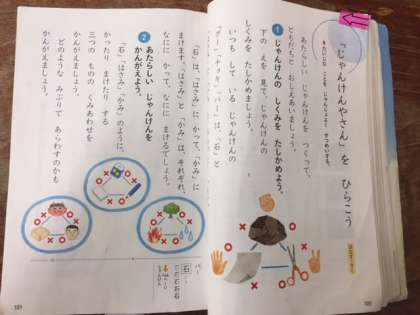 「じゃんけんやさん」を ひらこう
あたらしい じゃんけんを つくって、
ともだちと おしえあいましょう。
1 じゃんけんの しくみを たしかめよう。
下の えを 見て、じゃんけんの
しくみを たしかめましょう。
いつも して いる じゃんけんの
「グー」「チョキ」「パー」は、「石」と
「石」は、「はさみ」に かって、「かみ」に
まけます。「はさみ」と 「かみ」は、それぞれ、
なにに かって なにに まけるでしょう。
2 あたらしい じゃんけんを
かんがえよう。
「石」「はさみ」「かみ」のように、
かったり まけたり する
三つの ものの くみあわせを
かんがえましょう。
どのような みぶりで あらわすのかも
かんがえましょう。
パー
石
100
101